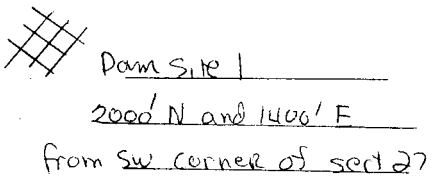 Dam Site 1
2000' N and 1400' E
from SW corner of sect 27